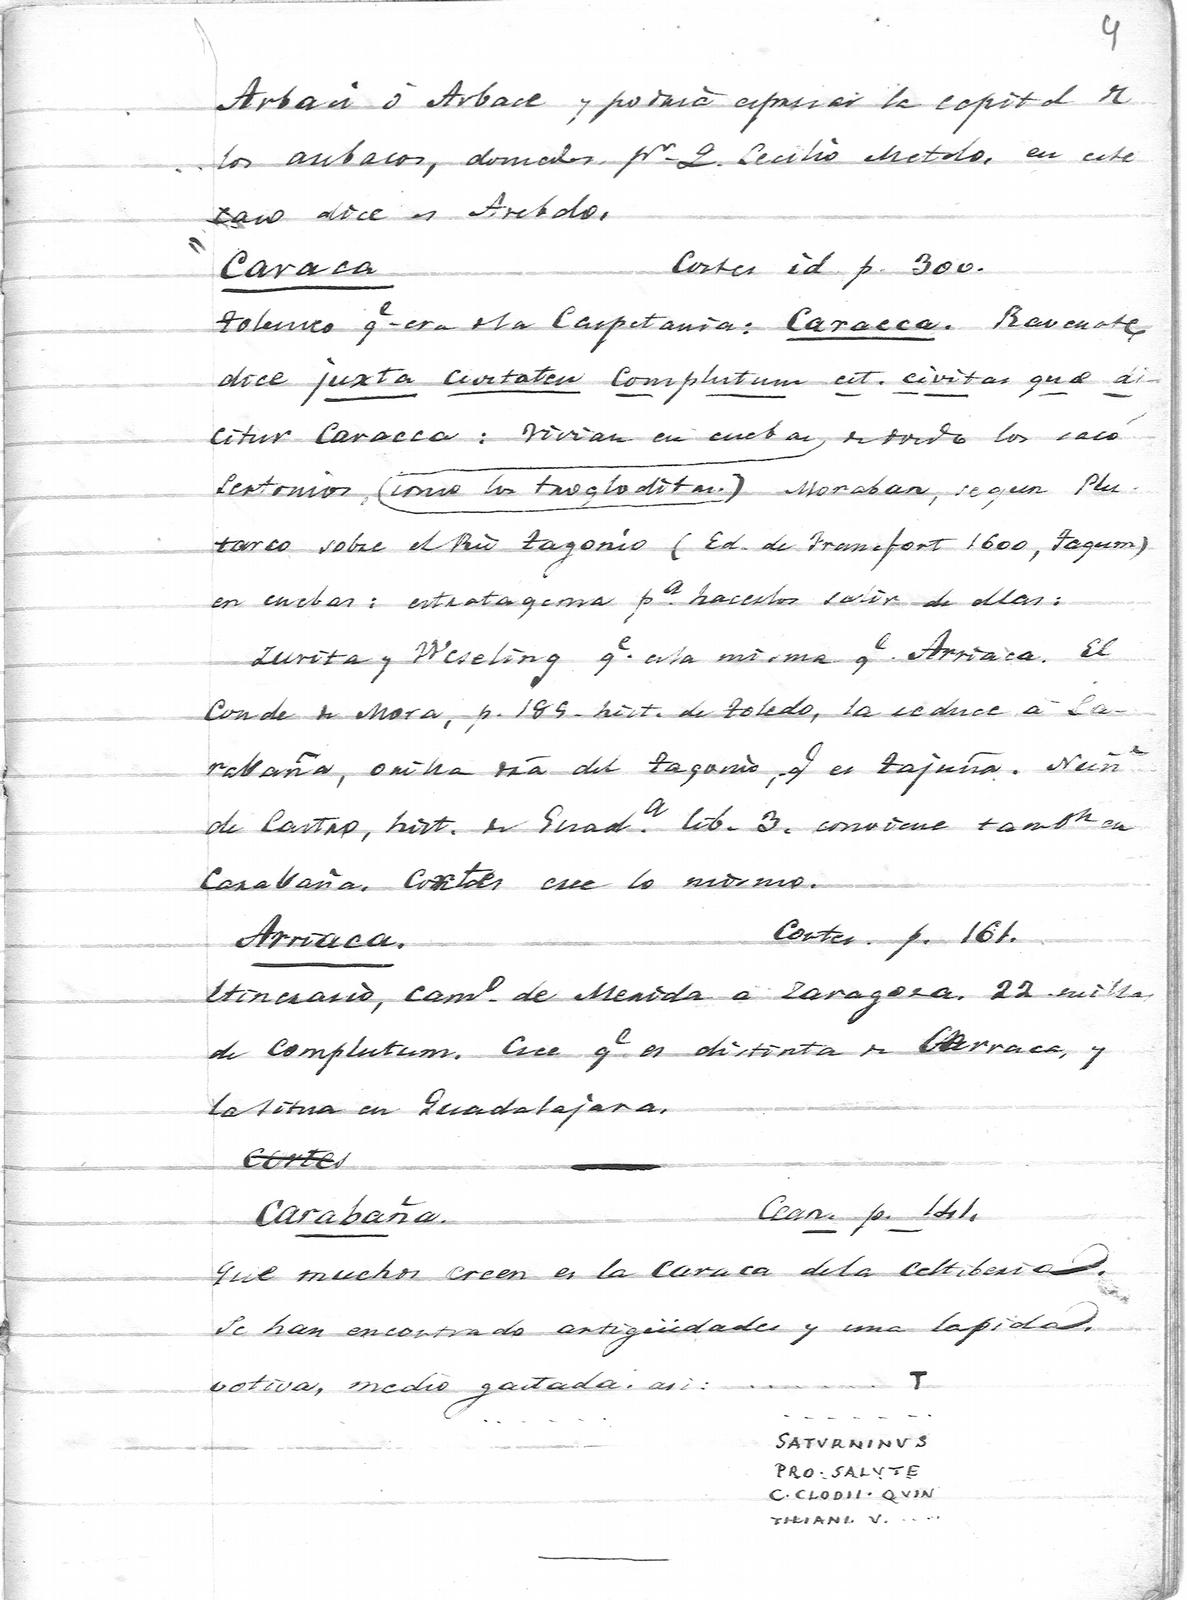 4
Arbaci ó Arbace y podria espresar la capitd de
los aribacos, domedos pr. Q. Cecilio Metelo. en este
caso dice es Arebdo.
" Caraca Cortes id p. 300.
tolemeo qe era dla Carpetania: Caracca. Ravenate
dice juxta civitaten Complutum est. civitas quæ di-
citur Caracca: Vivian en cuebas, de donde los sacó
Sertorios, (como los trogloditas.) Moraban, segun Plu-
tarco sobre el Rio tagonio (Ed. de Francfort 1600, Tagum)
en cuebas: estratagema pa. hacerlos salir de ellas:
Zurita y Weseling qe. esla misma qe. Arriaca. El
Conde de Mora, p. 189. hist. de toledo, la reduce á Ca-
rabaña, orilla del tagonio, q es tajuña. Nuñz
de Castro, hist. de Guada. lib. 3. conviene tambn en
Carabaña. Cortes cree lo mismo.
Arriaca. Cortes. p. 161.
Itinerario, camo. de Merida a Zaragoza. 22 millas
de Complutum. Cree qe es distinta de Carraca, y
la situa en Guadalajara.
Cortes
Carabaña. Cean. p. 141.
Que muchos creen es la Caraca dela Celtiberia.
Se han encontrado antigüedades y una lapida
votiva, medio gastada. asi: ........ T
- - - - - - -
SATVRNINVS
PRO. SALVTE
C. CLODII. QVIN
TILIANI. V. ....